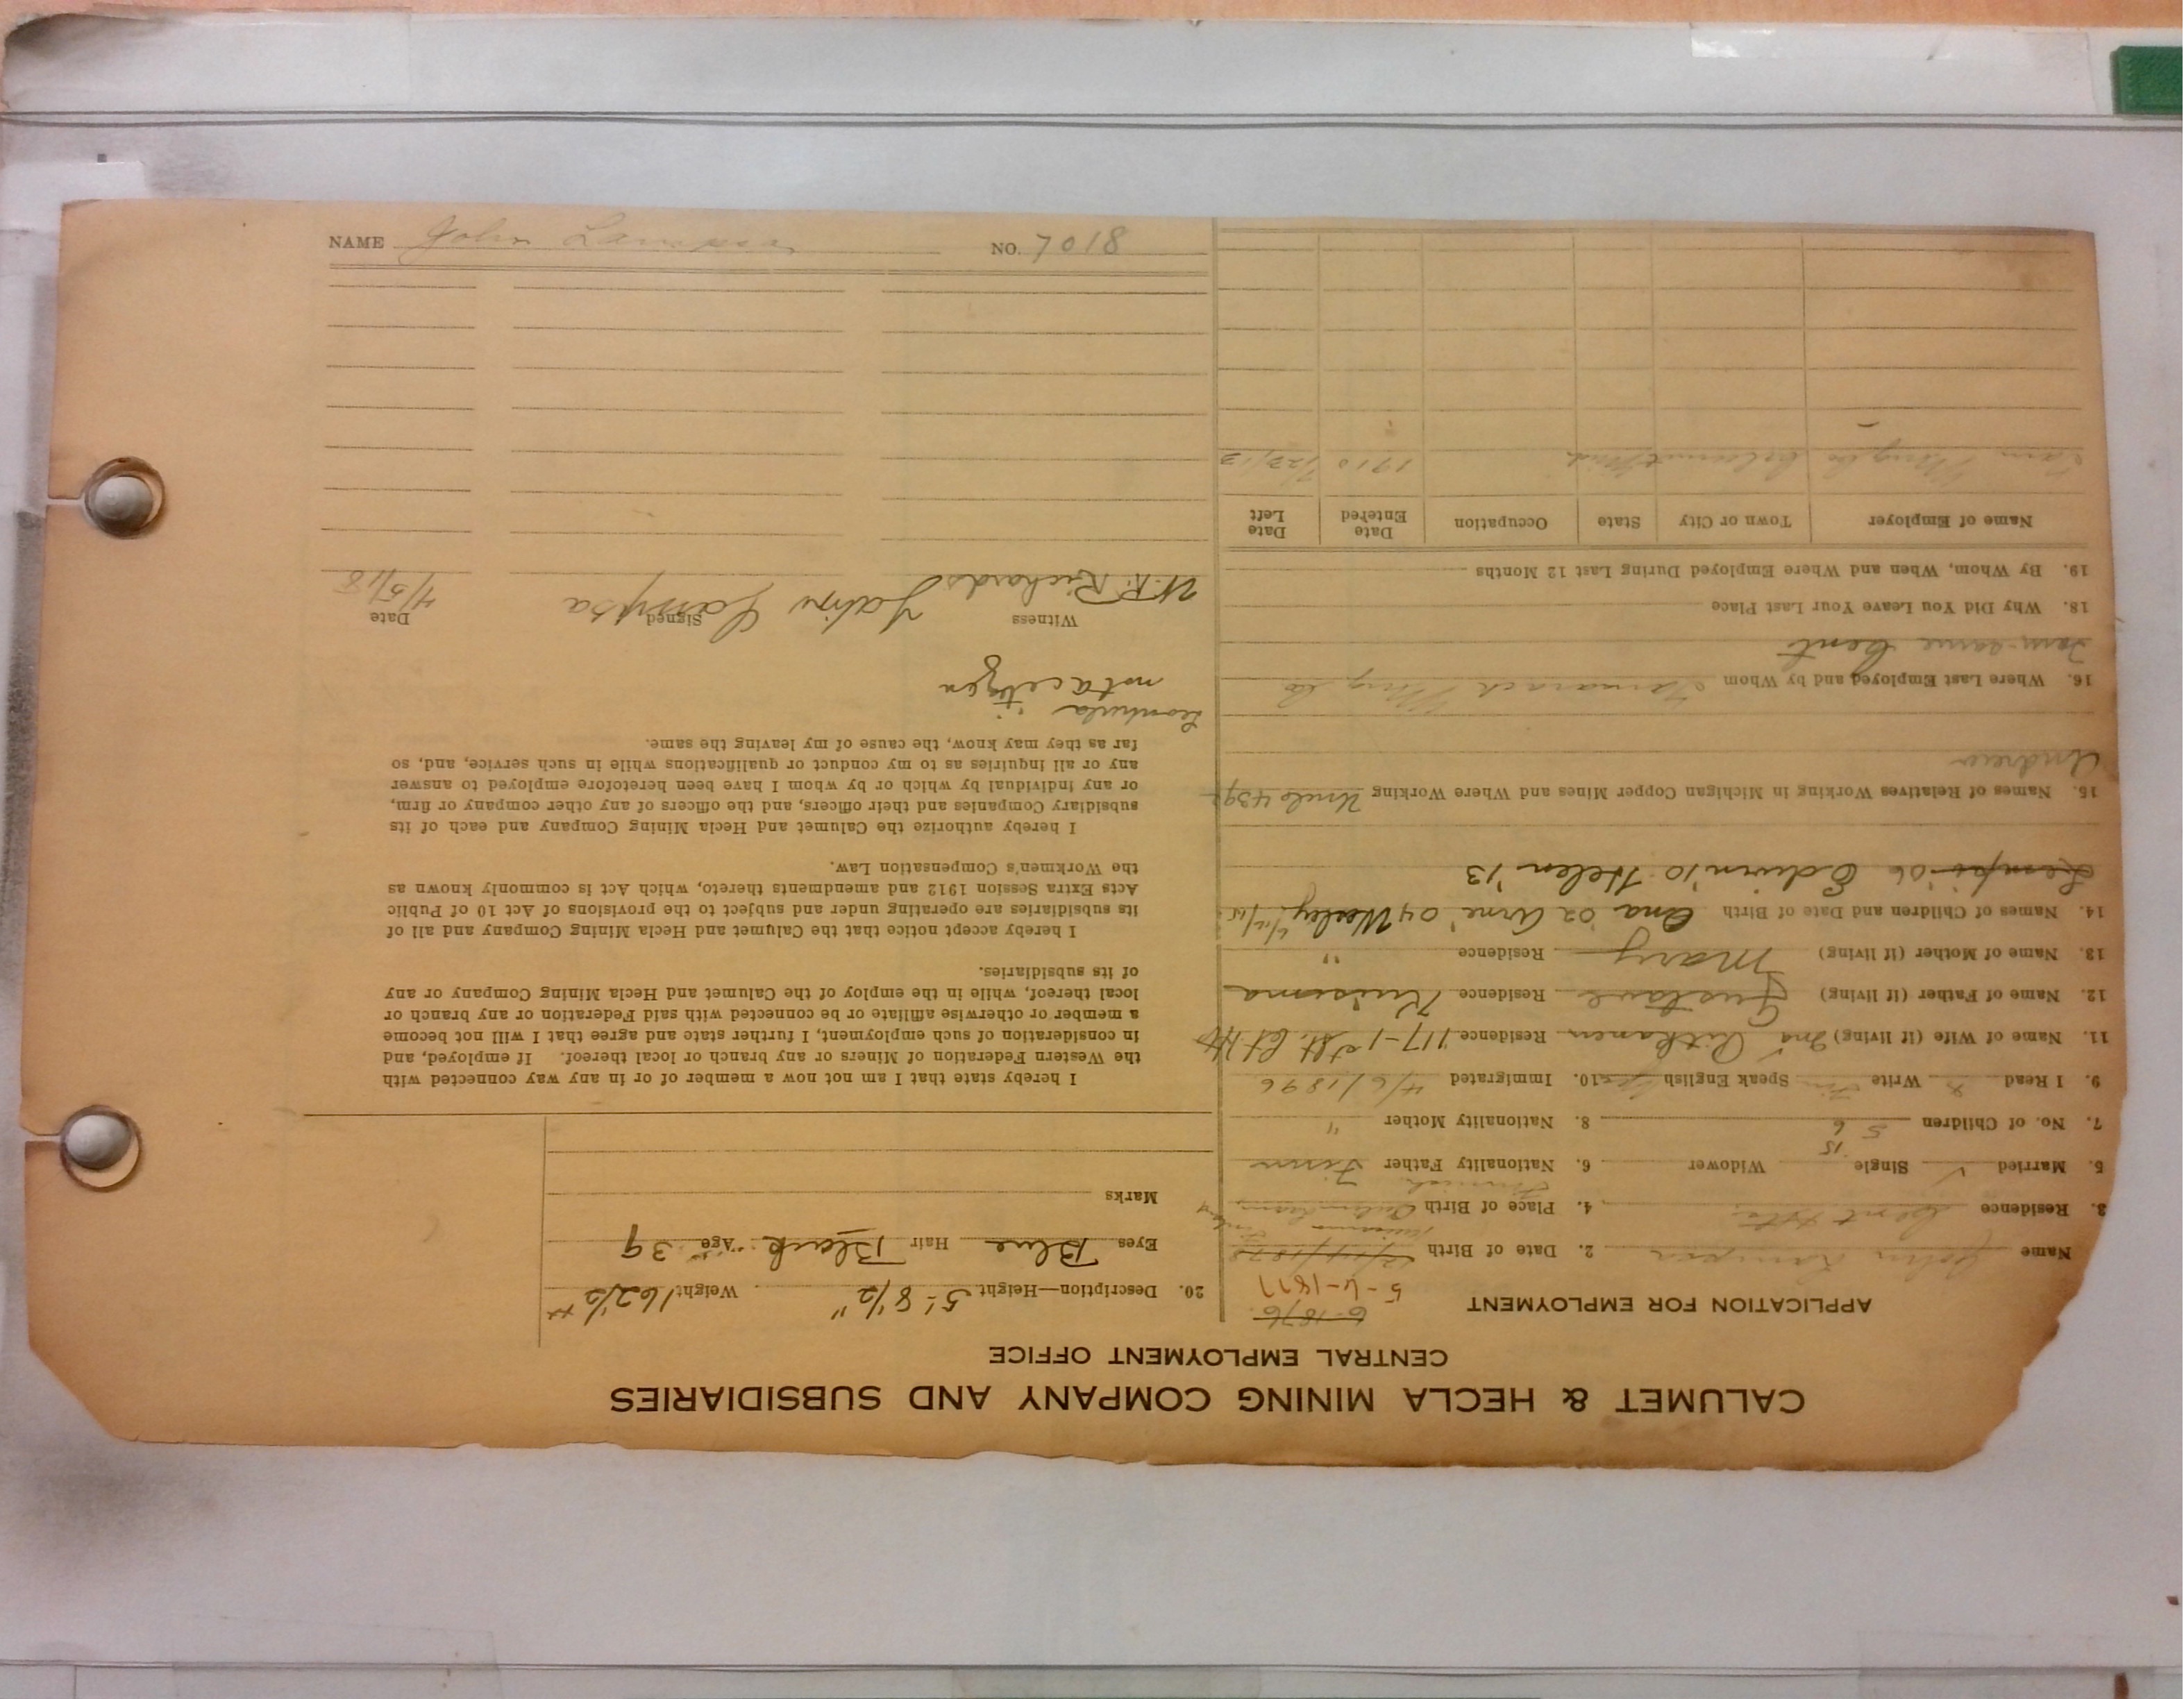 CALUMET & HECLA MINING COMPANY AND SUBSIDIARIES
CENTRAL EMPLOYMENT OFFICE
APPLICATION FOR EMPLOYMENT
6-1876
5-4-1877
Name John 2. Date of Birth
3. Residence 4. Place of Birth
5. Married ✓ Single Widower 6. Nationality Father Finn
15
7. No. of Children 5 8. Nationality Mother "
6
9. I Read x Write Fin Speak English yes 10. Immigrated 4/6/1896
11. Name of Wife (if living) Ina Residence 117-1st St.
12. Name of Father (if living) Gustave Residence
13. Name of Mother (if living) Mary Residence "
14. Names of Children and Date of Birth Ona '02 Arne '04 Wesley
Lempi '06 Edwin '10 Helen '13
15. Names of Relatives Working in Michigan Copper Mines and Where Working Uncle
Andrew
16. Where Last Employed and by Whom Tamarack Mng Co
18. Why Did You Leave Your Last Place
19. By Whom, When and Where Employed During Last 12 Months
Name of Employer Town or City State Occupation Date Entered Date Left
Tam Mng Co Calumet Mich 1910
20. Description—Height 5'- 8 1/2" Weight 162 1/2 ##
Eyes Blue Hair Black Age 39
Marks
I hereby state that I am not now a member of or in any way connected with
the Western Federation of Miners or any branch or local thereof. If employed, and
in consideration of such employment, I further state and agree that I will not become
a member or otherwise affiliate or be connected with said Federation or any branch or
local thereof, while in the employ of the Calumet and Hecla Mining Company or any
of its subsidiaries.
I hereby accept notice that the Calumet and Hecla Mining Company and all of
its subsidiaries are operating under and subject to the provisions of Act 10 of Public
Acts Extra Session 1912 and amendments thereto, which Act is commonly known as
the Workmen's Compensation Law.
I hereby authorize the Calumet and Hecla Mining Company and each of its
subsidiary Companies and their officers, and the officers of any other company or firm,
or any individual by which or by whom I have been heretofore employed to answer
any or all inquiries as to my conduct or qualifications while in such service, and, so
far as they may know, the cause of my leaving the same.
not a citizen
Witness Signed Date
W.R. Richards John Lampsa
NAME John NO. 7018